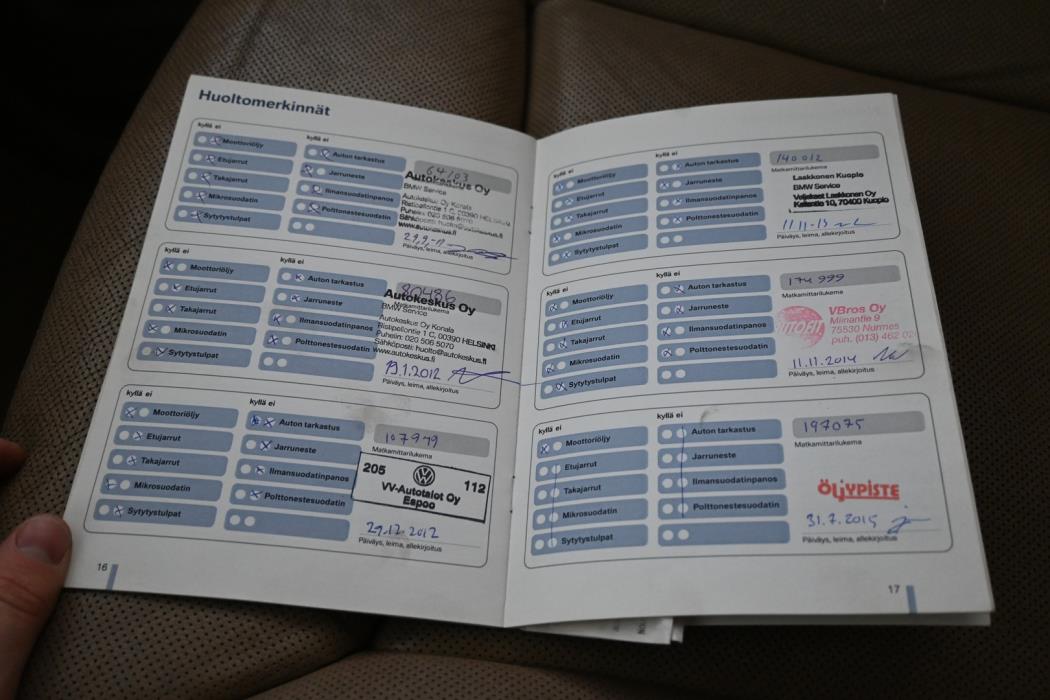 Huoltomerkinnät
kyllä ei
kyllä ei
Moottoriöljy
Etujarrut
Takajarrut
Mikrosuodatin
Sytytystulpat
Auton tarkastus
Jarruneste
Ilmansuodatinpanos
Polttonestesuodatin
64703
Autokeskus Oy
BMW Service
Autokeskus Oy Konala
Ristipellontie 1 C, 00390 HELSINKI
Puhelin: 020 506 5070
www.autokeskus.fi
Päiväys, leima, allekirjoitus
kyllä ei
kyllä ei
Moottoriöljy
Etujarrut
Takajarrut
Mikrosuodatin
Sytytystulpat
Auton tarkastus
Jarruneste
Ilmansuodatinpanos
Polttonestesuodatin
80486
Matkamittarilukema
Autokeskus Oy
BMW Service
Autokeskus Oy Konala
Ristipellontie 1 C, 00390 HELSINKI
Puhelin: 020 506 5070
Sähköposti: huolto@autokeskus.fi
www.autokeskus.fi
19.1.2012
Päiväys, leima, allekirjoitus
kyllä ei
kyllä ei
Moottoriöljy
Etujarrut
Takajarrut
Mikrosuodatin
Sytytystulpat
Auton tarkastus
Jarruneste
Ilmansuodatinpanos
Polttonestesuodatin
107979
Matkamittarilukema
205
112
VV-Autotalot Oy
Espoo
27.12.2012
Päiväys, leima, allekirjoitus
16
kyllä ei
kyllä ei
Moottoriöljy
Etujarrut
Takajarrut
Mikrosuodatin
Sytytystulpat
Auton tarkastus
Jarruneste
Ilmansuodatinpanos
Polttonestesuodatin
140012
Matkamittarilukema
Laakkonen Kuopio
BMW Service
Veljekset Laakkonen Oy
Kallantie 10, 70400 Kuopio
11.11-13
Päiväys, leima, allekirjoitus
kyllä ei
kyllä ei
Moottoriöljy
Etujarrut
Takajarrut
Mikrosuodatin
Sytytystulpat
Auton tarkastus
Jarruneste
Ilmansuodatinpanos
Polttonestesuodatin
174999
Matkamittarilukema
AUTOFIT
VBros Oy
Miinantie 9
75530 Nurmes
puh. (013) 462 02
11.11.2014
Päiväys, leima, allekirjoitus
kyllä ei
kyllä ei
Moottoriöljy
Etujarrut
Takajarrut
Mikrosuodatin
Sytytystulpat
Auton tarkastus
Jarruneste
Ilmansuodatinpanos
Polttonestesuodatin
197075
Matkamittarilukema
ÖLJYPISTE
31.7.2015
Päiväys, leima, allekirjoitus
17